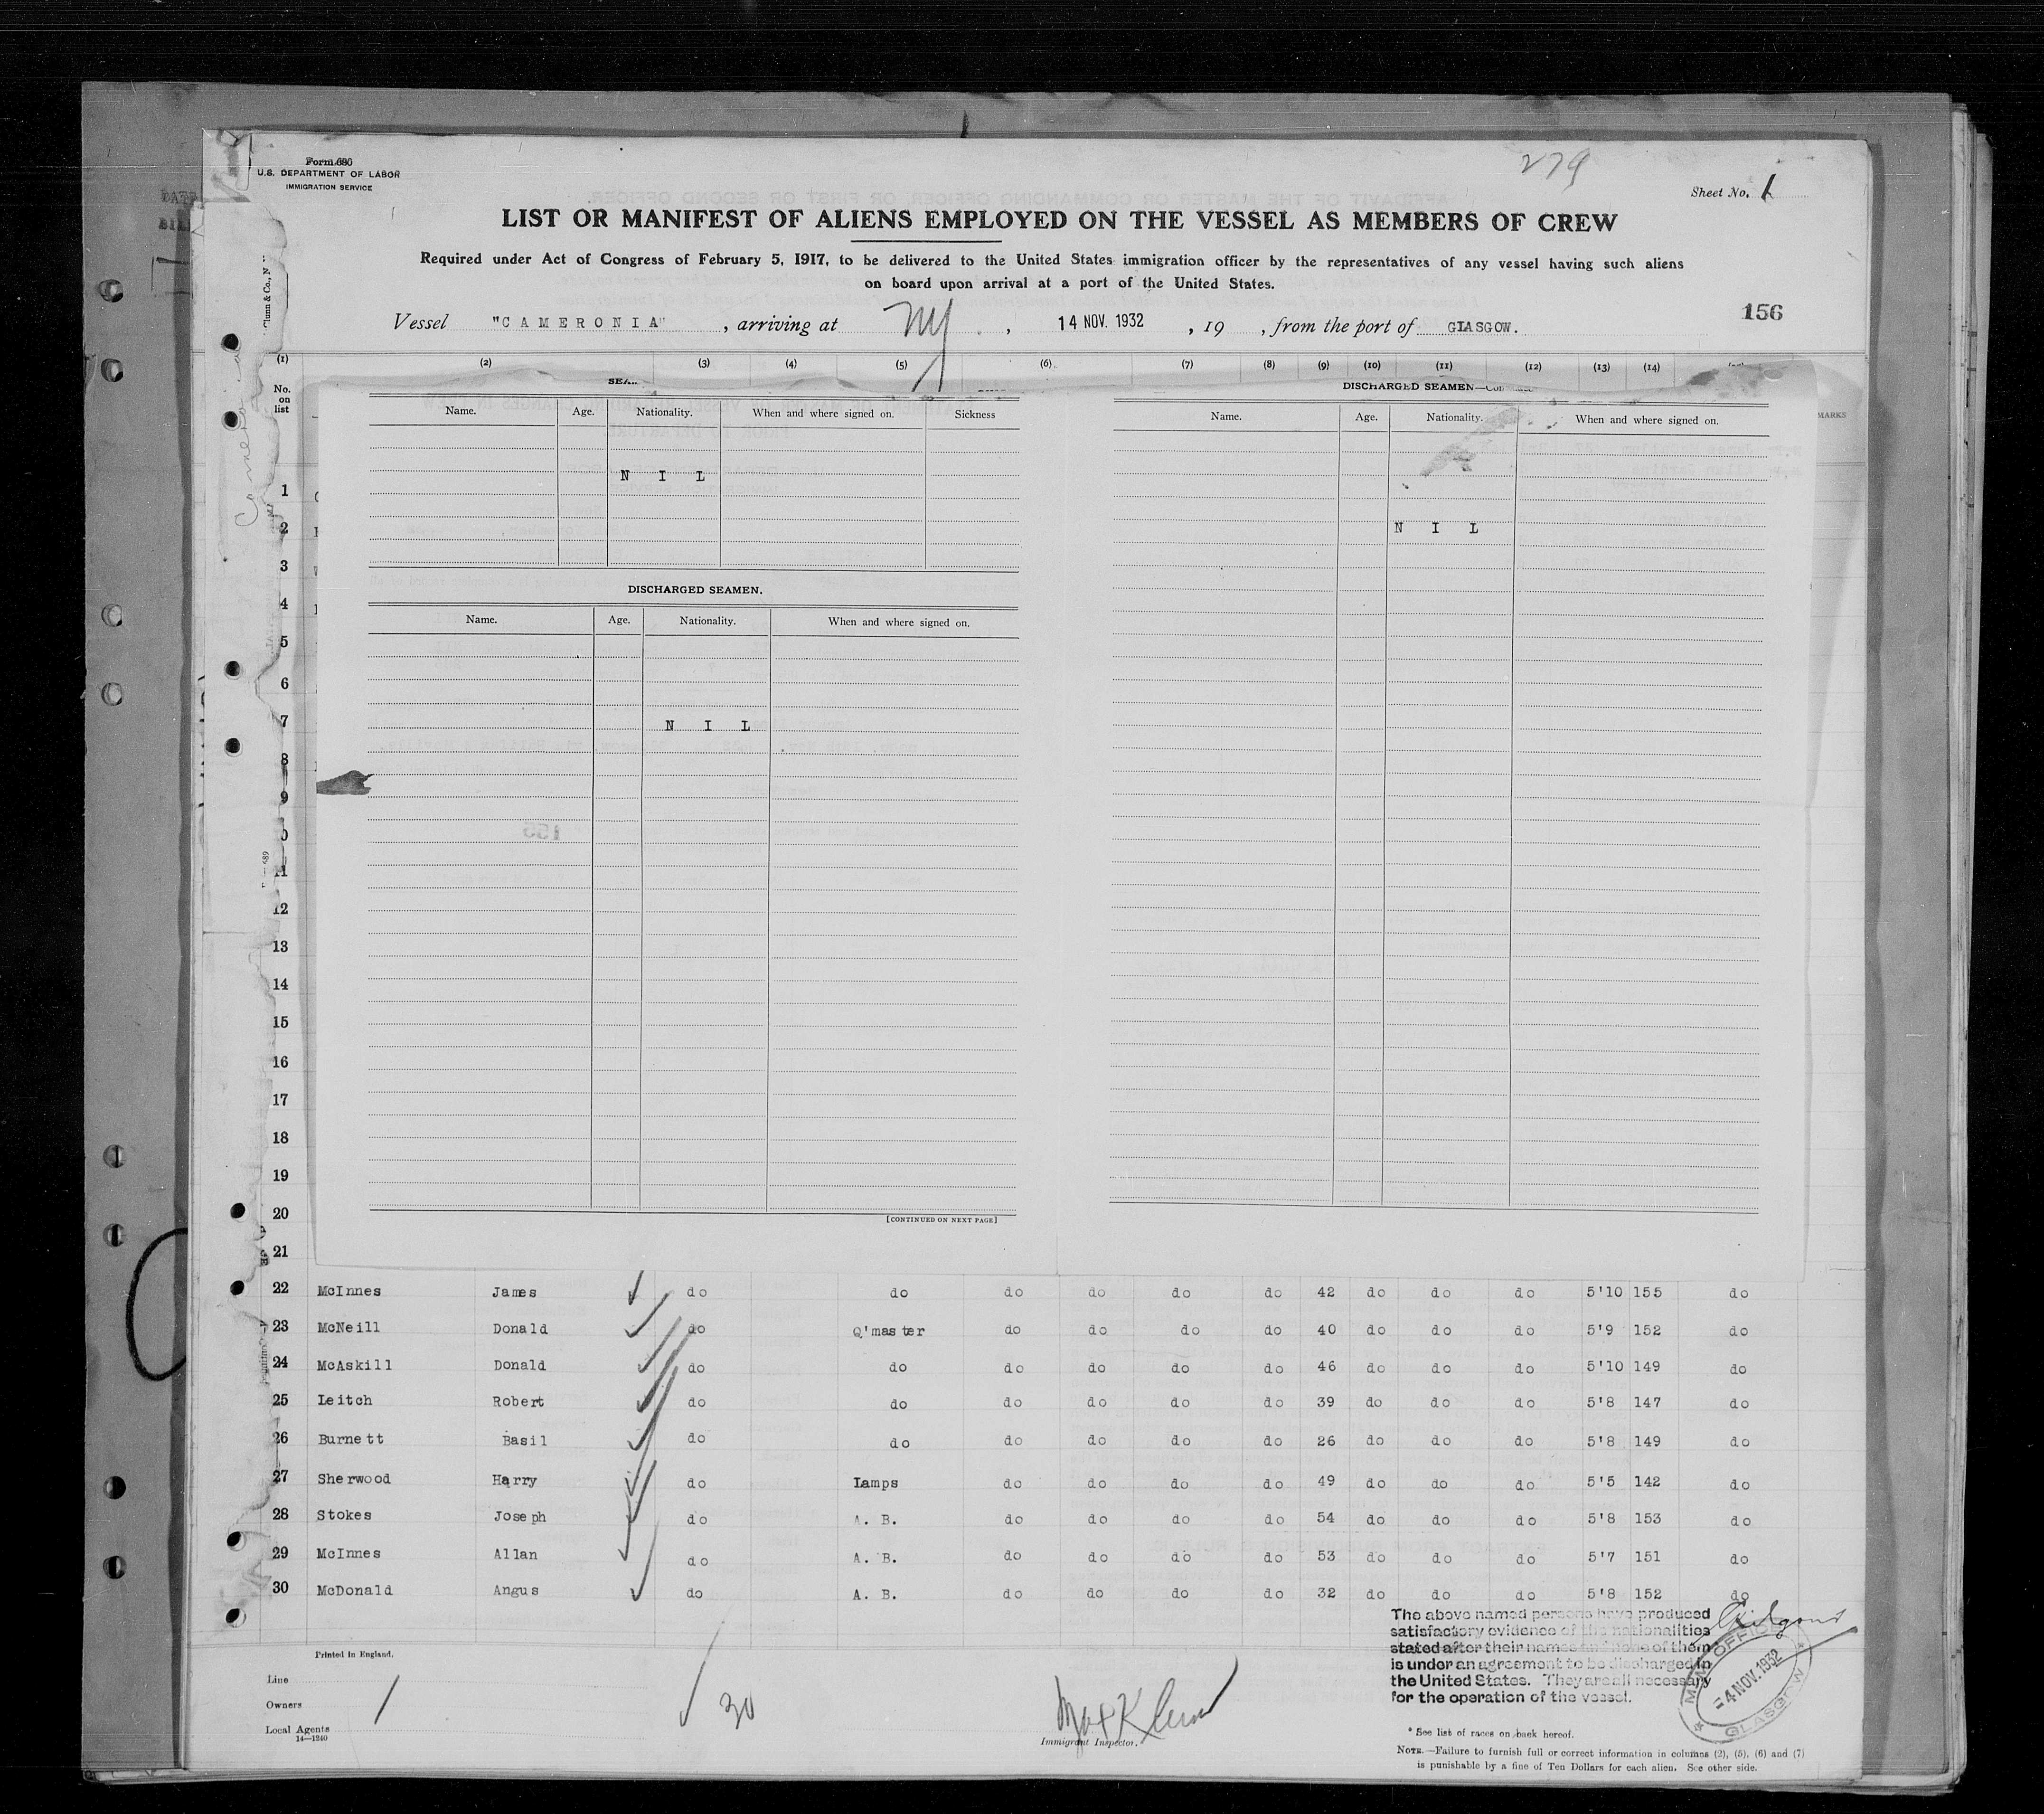 Form 686
U.S. DEPARTMENT OF LABOR
IMMIGRATION SERVICE
279
Sheet No. 1
LIST OR MANIFEST OF ALIENS EMPLOYED ON THE VESSEL AS MEMBERS OF CREW
Required under Act of Congress of February 5, 1917, to be delivered to the United States immigration officer by the representatives of any vessel having such aliens
on board upon arrival at a port of the United States.
156
Vessel "CAMERONIA" , arriving at NY , 14 NOV. 1932 , 19 , from the port of GLASGOW.
(1) (2) (3) (4) (5) (6) (7) (8) (9) (10) (11) (12) (13) (14)
No. on list
DISCHARGED SEAMEN—
Name. Age. Nationality. When and where signed on. Sickness
Name. Age. Nationality. When and where signed on.
N I L
N I L
DISCHARGED SEAMEN.
Name. Age. Nationality. When and where signed on.
N I L
[CONTINUED ON NEXT PAGE]
Cameronia
1
2
3
4
5
6
7
8
9
0
11
12
13
14
15
16
17
18
19
20
21
22 McInnes James do do do do do do 42 do do do 5'10 155 do
23 McNeill Donald do Q'master do do do do 40 do do do 5'9 152 do
24 McAskill Donald do do do do do do 46 do do do 5'10 149 do
25 Leitch Robert do do do do do do 39 do do do 5'8 147 do
26 Burnett Basil do do do do do do 26 do do do 5'8 149 do
27 Sherwood Harry do Lamps do do do do 49 do do do 5'5 142 do
28 Stokes Joseph do A. B. do do do do 54 do do do 5'8 153 do
29 McInnes Allan do A. B. do do do do 53 do do do 5'7 151 do
30 McDonald Angus do A. B. do do do do 32 do do do 5'8 152 do
The above named persons have produced
satisfactory evidence of the nationalities
stated after their names and none of them
is under an agreement to be discharged in
the United States. They are all necessary
for the operation of the vessel.
M.M. OFFICE
4 NOV. 1932
GLASGOW
Printed in England.
Line
Owners
Local Agents
14—1240
30
Immigrant Inspector.
* See list of races on back hereof.
NOTE.—Failure to furnish full or correct information in columns (2), (5), (6) and (7)
is punishable by a fine of Ten Dollars for each alien. See other side.